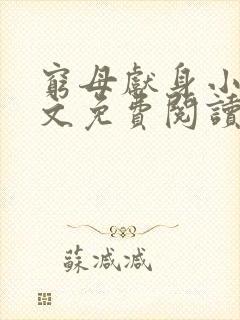 窮母獻身小
文免費閱讀
蘇減減